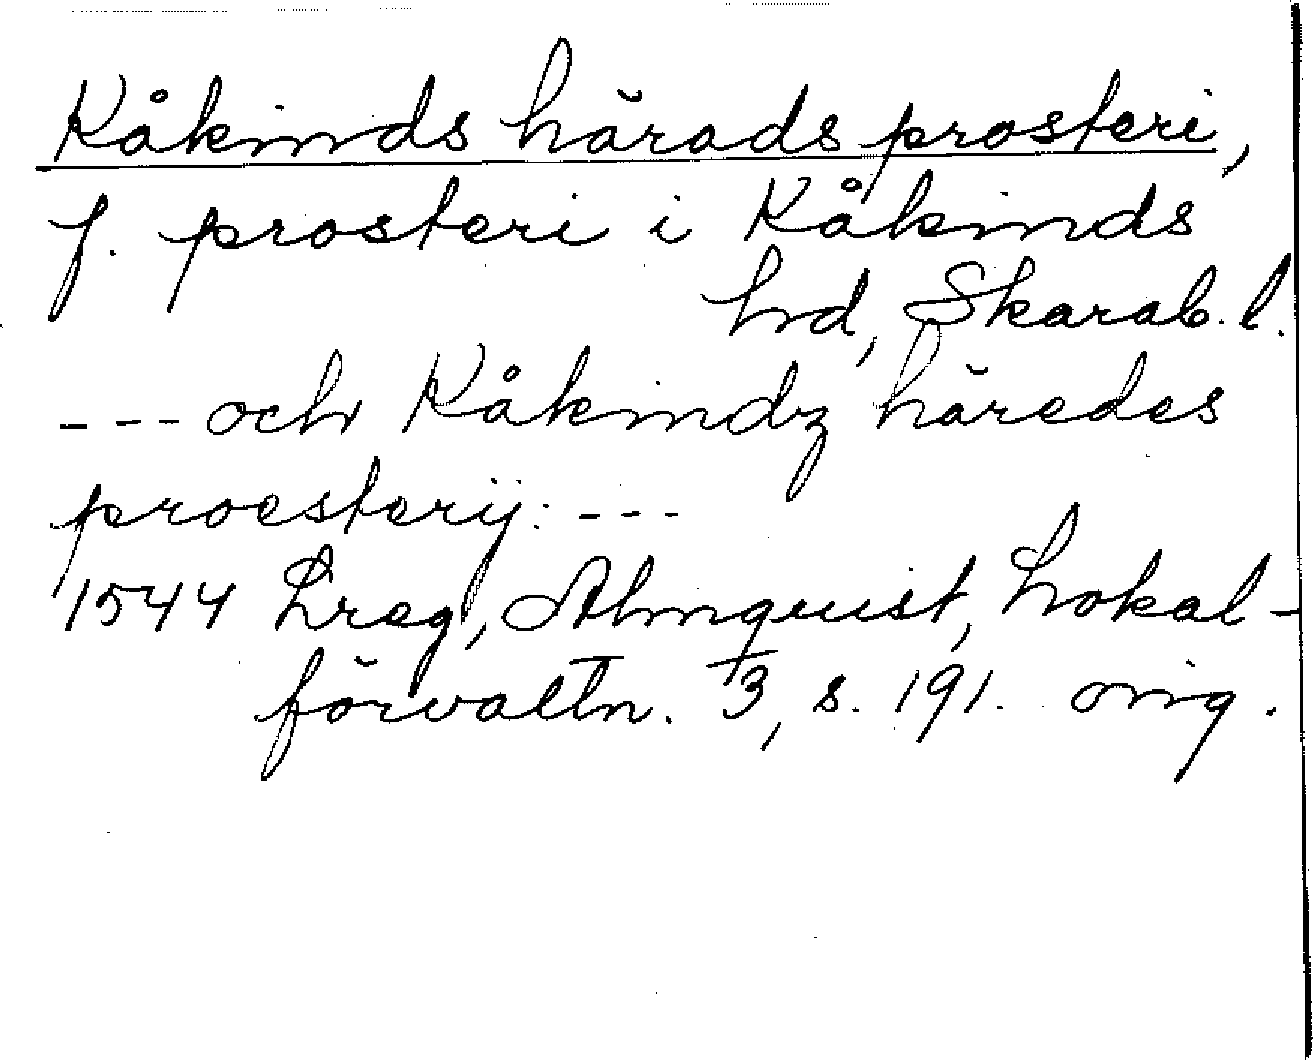 Kåkinds härads prosteri,
f. prosteri i Kåkinds
hd, Skarab. l.
--- och Kåkindz häredes
proestery: ---
1544 Lreg, Almquist, Lokal-
förvaltn. 3, s. 191. orig.